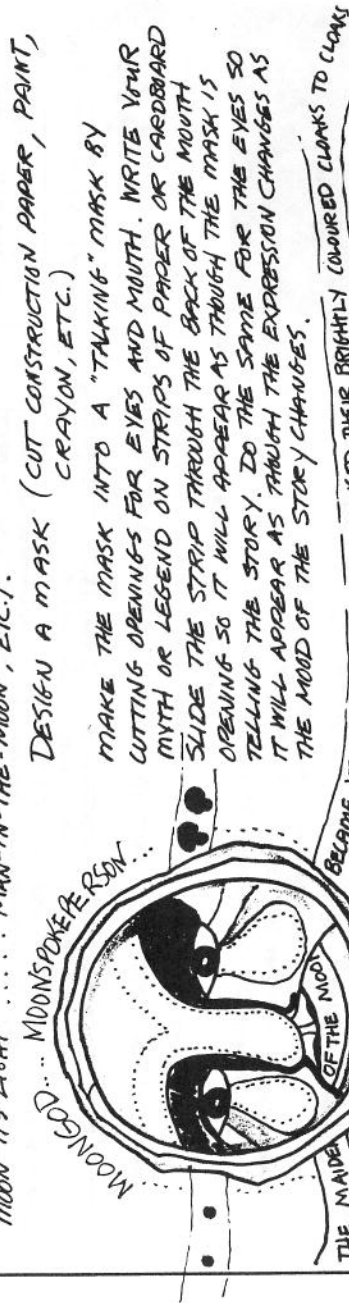 MOON ITS LIGHT ..... MAN-IN-THE-MOON, ETC.).
DESIGN A MASK (CUT CONSTRUCTION PAPER, PAINT,
CRAYON, ETC.)
MAKE THE MASK INTO A "TALKING" MASK BY
CUTTING OPENINGS FOR EYES AND MOUTH. WRITE YOUR
MYTH OR LEGEND ON STRIPS OF PAPER OR CARDBOARD
SLIDE THE STRIP THROUGH THE BACK OF THE MOUTH
OPENING SO IT WILL APPEAR AS THOUGH THE MASK IS
TELLING THE STORY. DO THE SAME FOR THE EYES SO
IT WILL APPEAR AS THOUGH THE EXPRESSION CHANGES AS
THE MOOD OF THE STORY CHANGES.
MOONGOD... MOONSPOKEPERSON...
THE MAIDE
OF THE MOON
BECAME
THEIR BRIGHTLY COLOURED CLOAKS TO CLOAKS